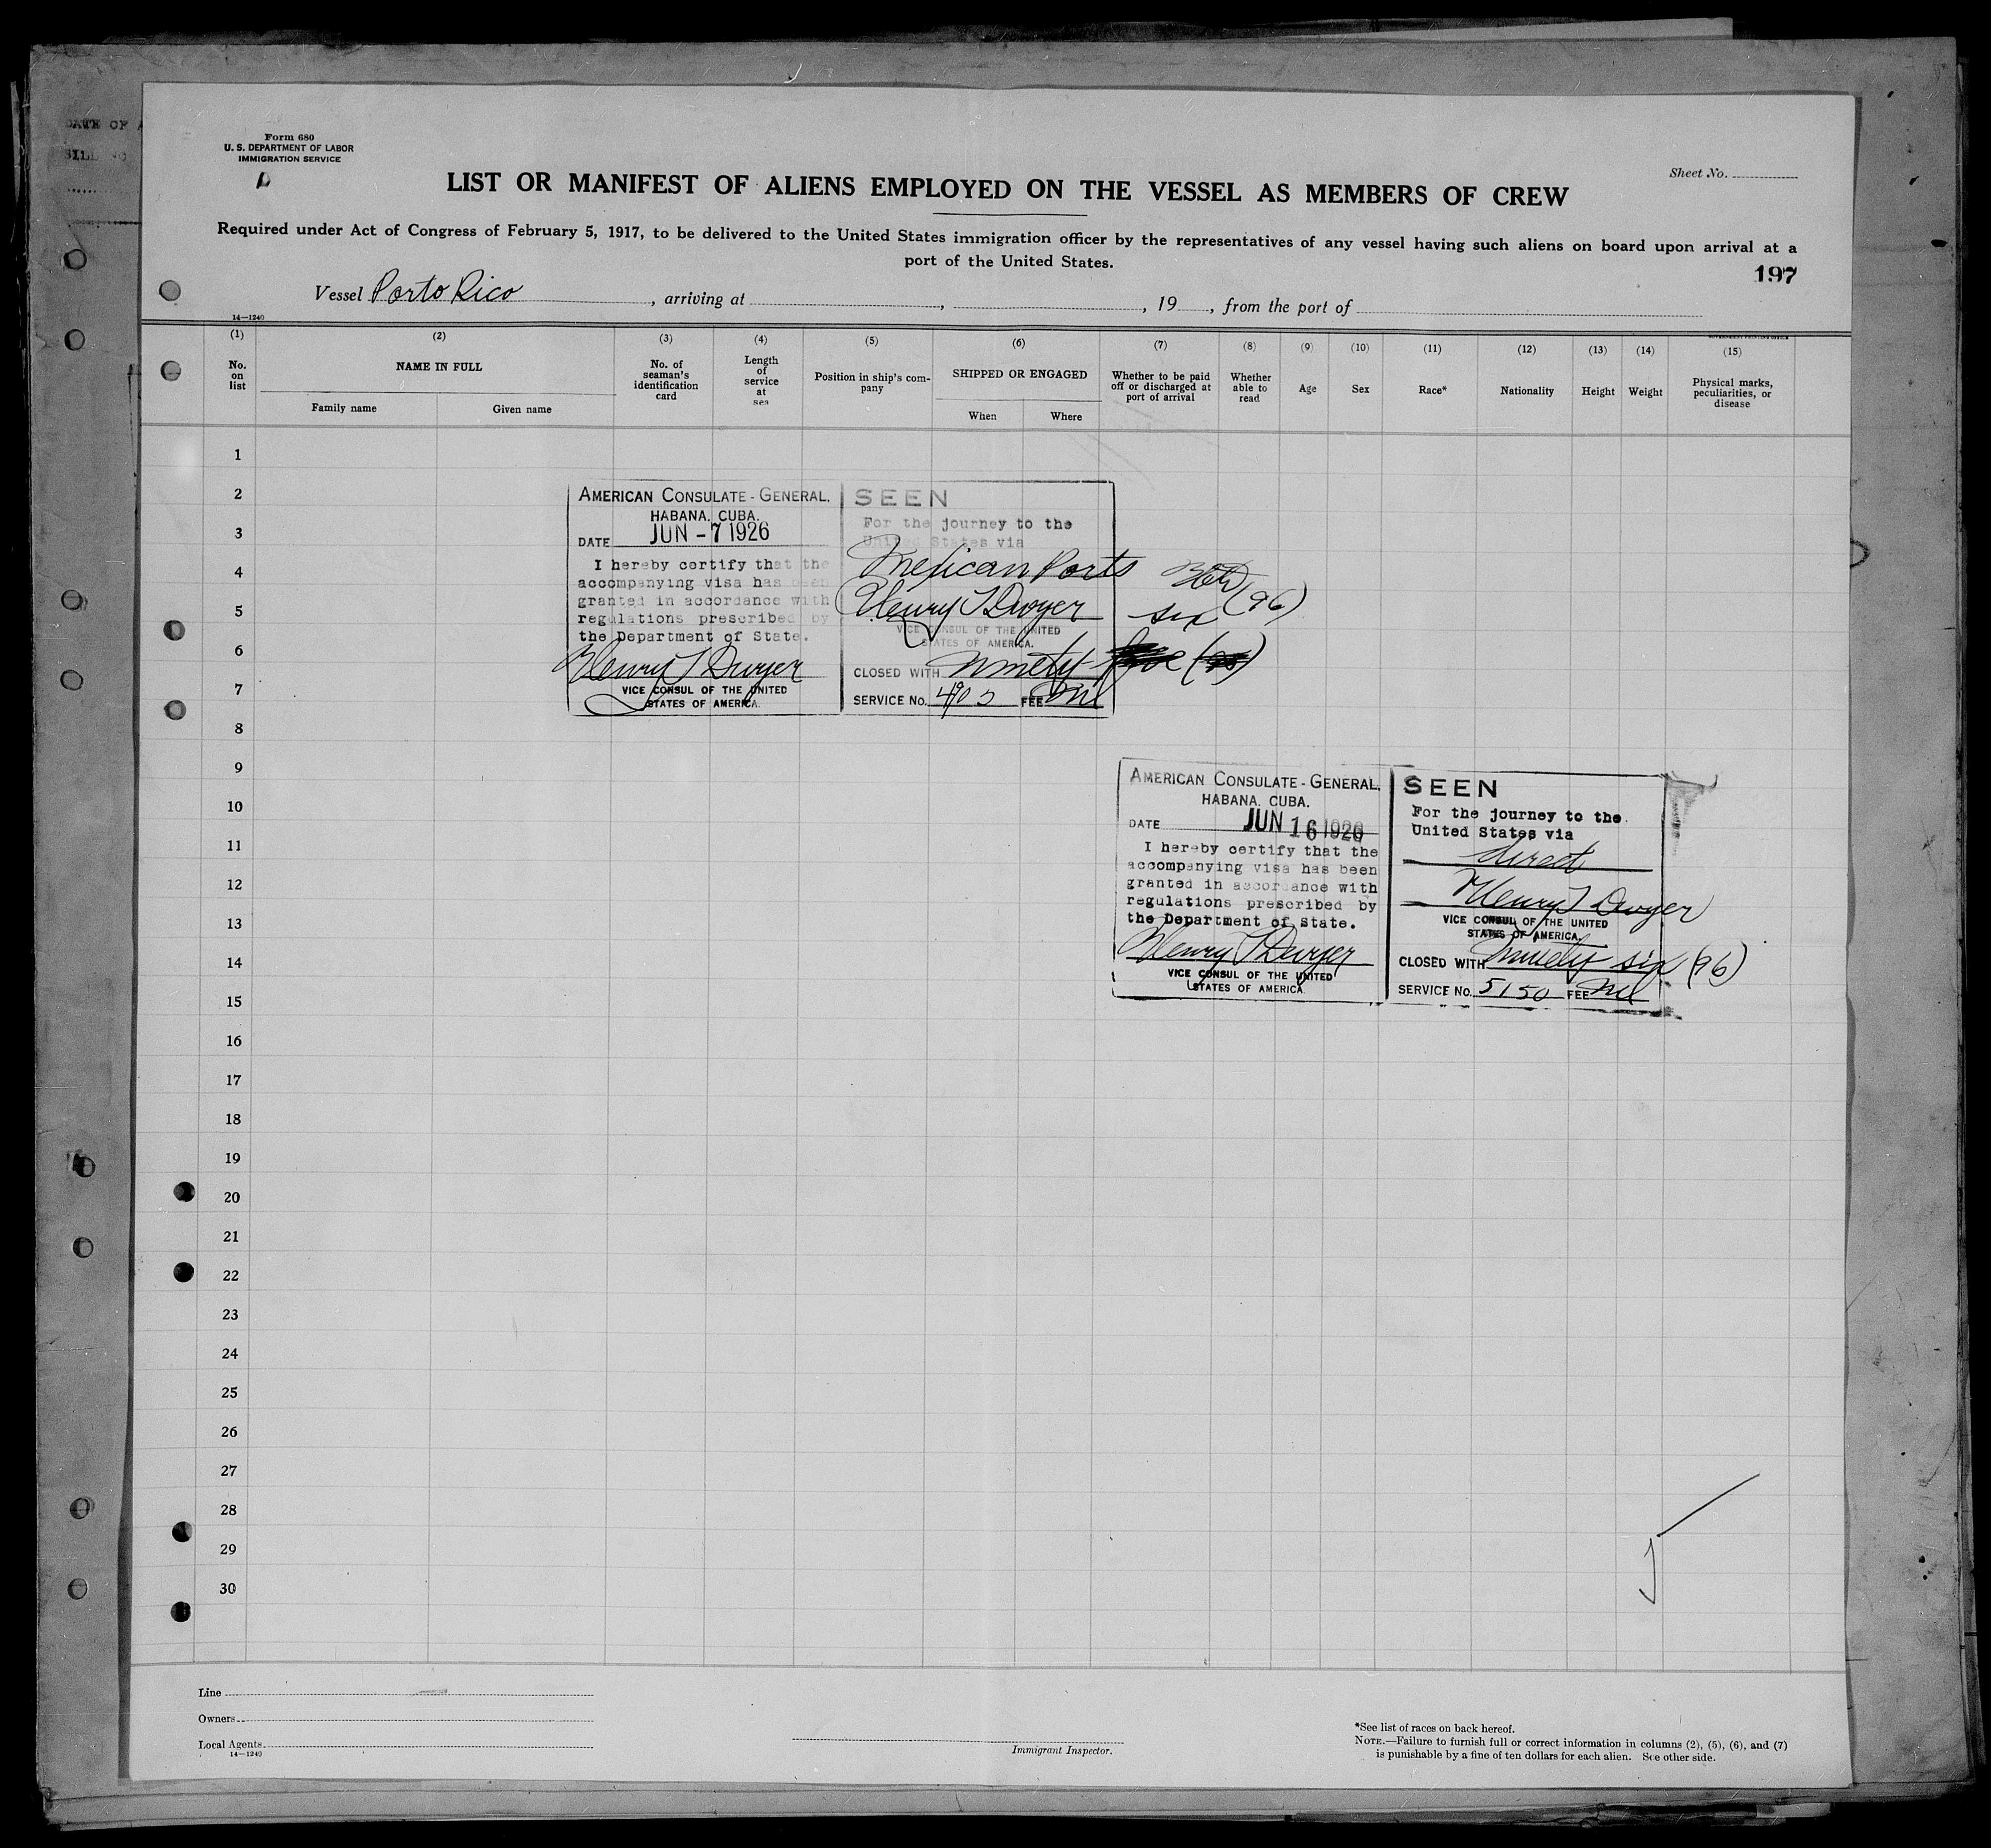 DATE OF A
BILL NO
......
Form 680
U. S. DEPARTMENT OF LABOR
IMMIGRATION SERVICE
Sheet No.
LIST OR MANIFEST OF ALIENS EMPLOYED ON THE VESSEL AS MEMBERS OF CREW
Required under Act of Congress of February 5, 1917, to be delivered to the United States immigration officer by the representatives of any vessel having such aliens on board upon arrival at a
port of the United States.
197
Vessel Porto Rico, arriving at , , 19 , from the port of
14—1240
(1) (2) (3) (4) (5) (6) (7) (8) (9) (10) (11) (12) (13) (14) (15)
No. on list
NAME IN FULL
Family name Given name
No. of seaman's identification card
Length of service at sea
Position in ship's company
SHIPPED OR ENGAGED
When Where
Whether to be paid off or discharged at port of arrival
Whether able to read
Age
Sex
Race*
Nationality
Height
Weight
Physical marks, peculiarities, or disease
1
2
3
4
5
6
7
8
9
10
11
12
13
14
15
16
17
18
19
20
21
22
23
24
25
26
27
28
29
30
AMERICAN CONSULATE-GENERAL,
HABANA, CUBA.
DATE JUN -7 1926
I hereby certify that the
accompanying visa has been
granted in accordance with
regulations prescribed by
the Department of State.
Henry T Dwyer
VICE CONSUL OF THE UNITED
STATES OF AMERICA.
SEEN
For the journey to the
United States via
Mexican Ports
Henry T Dwyer
six (96)
VICE CONSUL OF THE UNITED
STATES OF AMERICA.
CLOSED WITH Ninety
SERVICE No. FEE Nil
AMERICAN CONSULATE-GENERAL,
HABANA, CUBA.
DATE JUN 16 1926
I hereby certify that the
accompanying visa has been
granted in accordance with
regulations prescribed by
the Department of State.
Henry T Dwyer
VICE CONSUL OF THE UNITED
STATES OF AMERICA
SEEN
For the journey to the
United States via
direct
Henry T Dwyer
VICE CONSUL OF THE UNITED
STATES OF AMERICA.
CLOSED WITH Ninety six (96)
SERVICE No. 5150 FEE Nil
Line
Owners
Local Agents
14—1240
Immigrant Inspector.
*See list of races on back hereof.
NOTE.—Failure to furnish full or correct information in columns (2), (5), (6), and (7)
is punishable by a fine of ten dollars for each alien. See other side.